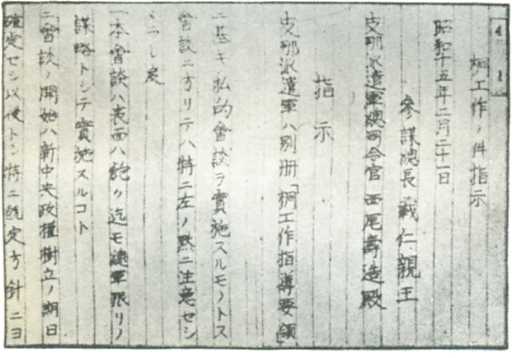 桐工作ノ件指示
昭和十五年二月二十一日
參謀總長 載仁親王
支那派遣軍總司令官 西尾壽造殿
指示
支那派遣軍ハ別冊「桐工作指導要領」
ニ基キ私的會談ヲ實施スルモノトス
會談ニ方リテハ特ニ左ノ點ニ注意セシ
度
一 本會談ハ表面ハ飽ク迄モ總軍限リノ
謀略トシテ實施スルコト
二 會談ノ開始ハ新中央政權樹立ノ期日
確定セシ以後トシ特ニ既定方針ニヨ